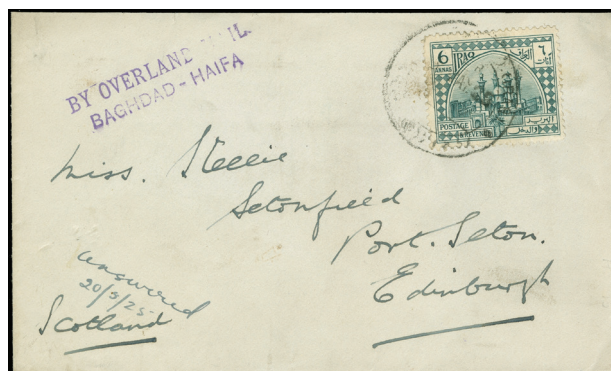 BY OVERLAND MAIL
BAGHDAD - HAIFA
6 IRAQ العراق ٦
ANNAS آنات
POSTAGE
& REVENUE
Miss. Stellie
Setonfield
Port. Seton.
Edinburgh
answered
20/5/25
Scotland